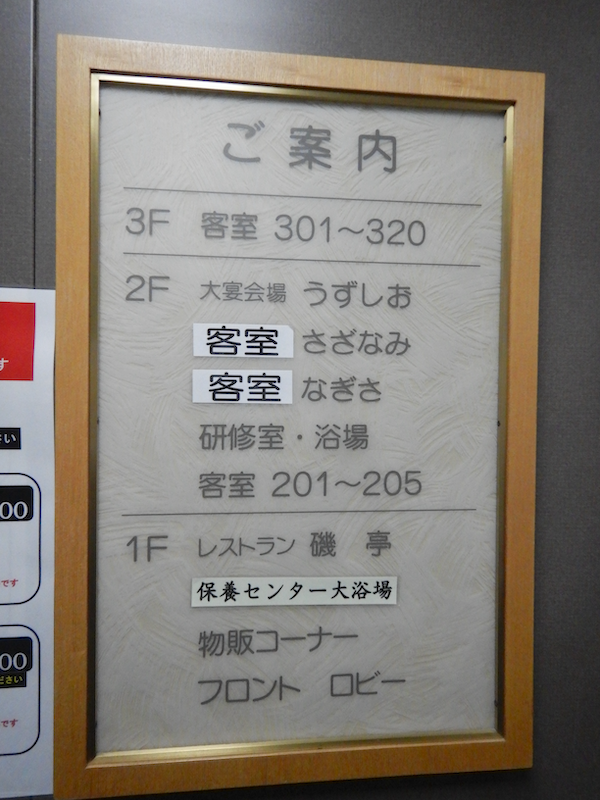 ご案内
3F 客室 301〜320
2F 大宴会場 うずしお
客室 さざなみ
客室 なぎさ
研修室・浴場
客室 201〜205
1F レストラン 磯 亭
保養センター大浴場
物販コーナー
フロント ロビー
す
さい
00
です
00
ださい
です